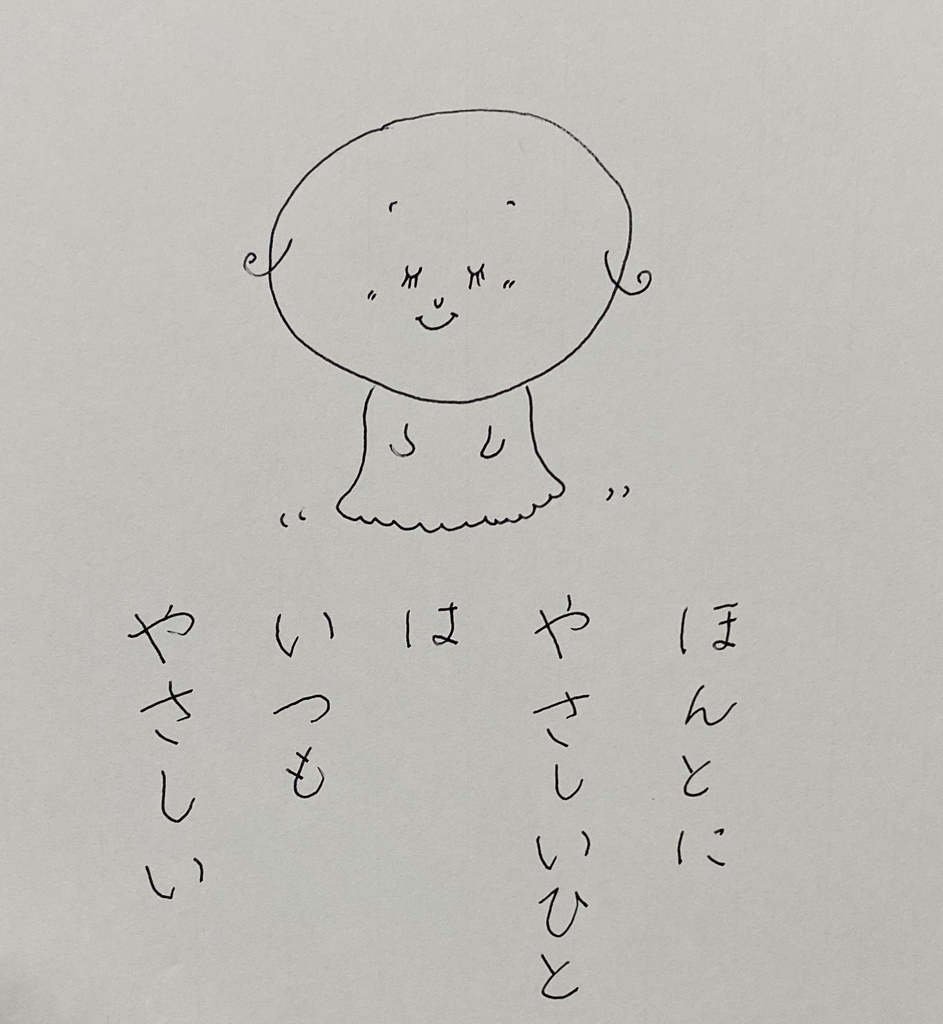 ほんとに
やさしいひと
は
いつも
やさしい